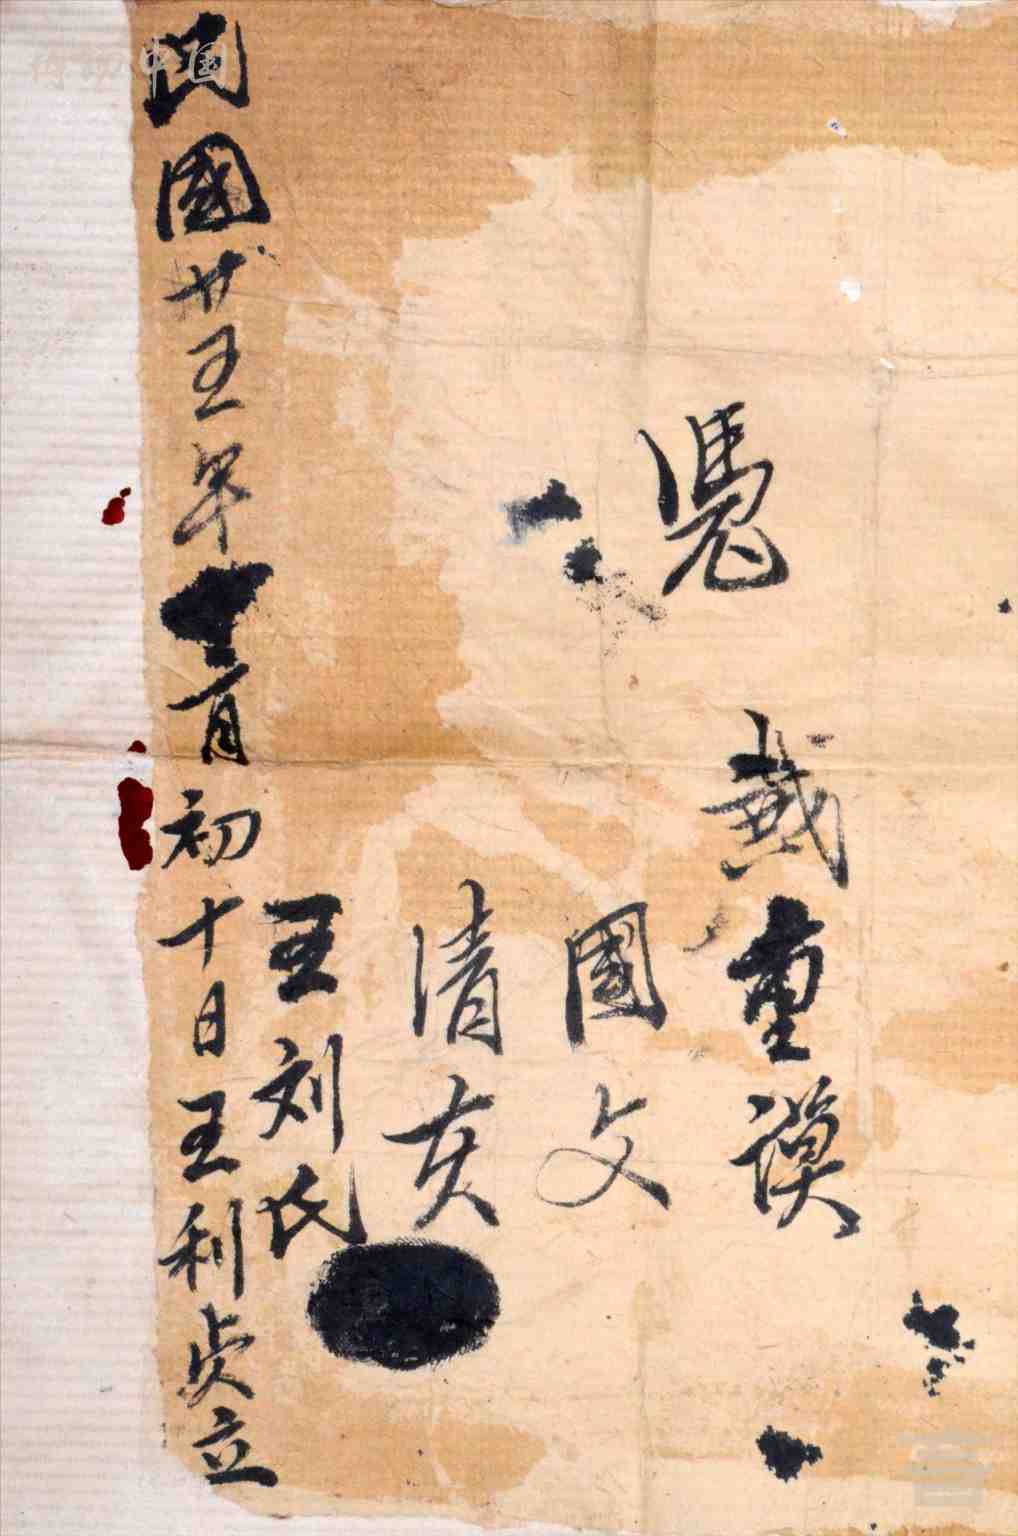 憑
戴重謨
國文
清亥
王刘氏
民國廿五年十一月初十日王利貞立
中国